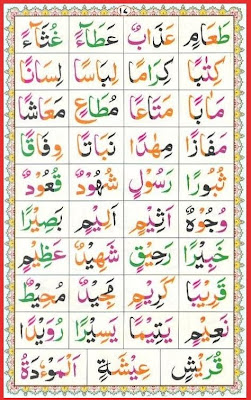 ١٤
طَعَامٍ عَذَابٌ عَطَآءً غُثَآءً
كِتٰبًا كِرَامًا لِبَاسًا لِسَانًا
مَاٰبًا مَتَاعًا مُطَاعٍ مَعَاشًا
مَفَازًا مِهٰدًا نَبَاتًا وِفَاقًا
ثُبُوْرًا رَسُوْلٍ شُهُوْدٌ قُعُوْدٌ
وُجُوْهٌ اَثِيْمٍ اَلِيْمٍ بَصِيْرًا
خَبِيْرًا رَحِيْقٍ شَهِيْدٌ عَظِيْمٍ
قَرِيْبًا كَرِيْمٍ مَجِيْدٌ مُحِيْطٌ
نَعِيْمٍ يَتِيْمًا يَسِيْرًا رُوَيْدًا
قُرَيْشٍ عِيْشَةٍ اَلْمَوْءٗدَةُ